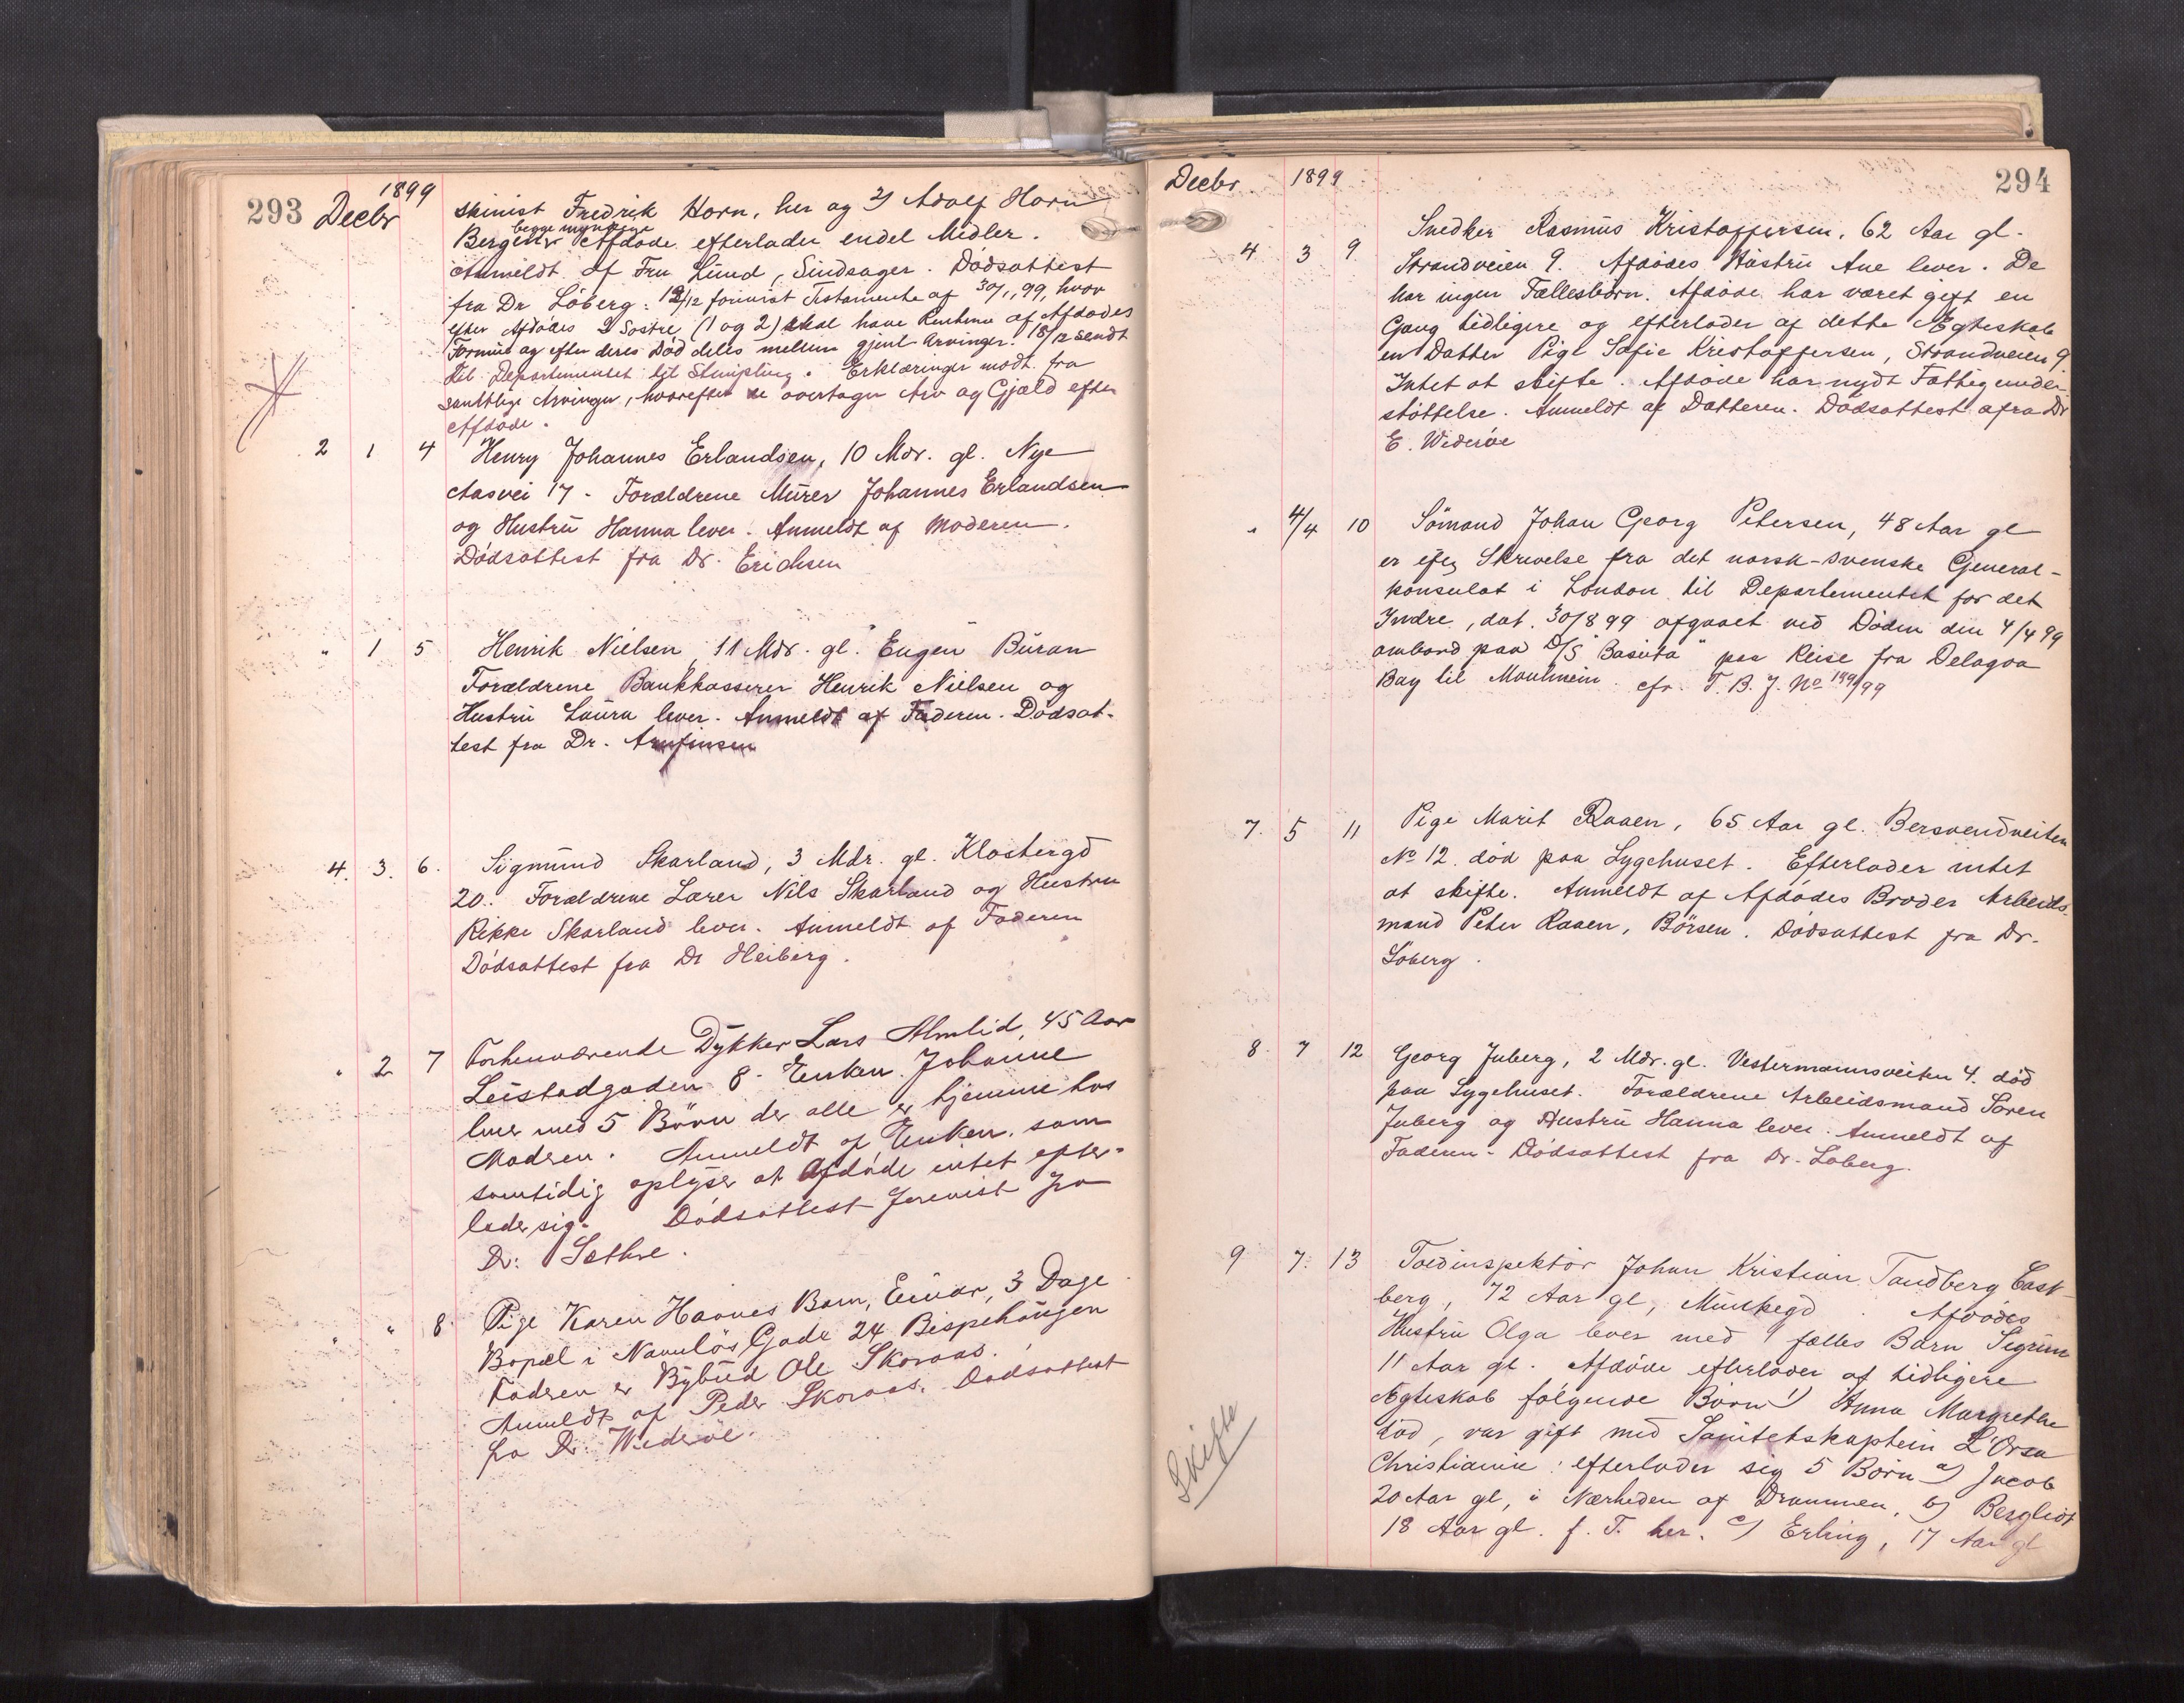 293 Decbr 1899
skinist Fredrik Horn, her og 2) Adolf Horn
begge myndige
Bergen. Afdøde efterlader endel Midler.
Anmeldt af Fru Lund, Sindsager. Dødsattest
fra Dr Löberg. 12/12 forevist Testamente af 30/1, 99, hvor
efter Afdødes 2 Søstre (1 og 2) skal have Renterne af Afdødes
Formue og efter deres Død deles mellem gjenl Arvinger. 18/12 sendt
til Departementet til Stempling. Erklæringer modt. fra
samtlige Arvinger, hvorefter de overtager Arv og Gjæld efter
Afdøde.
2 1 4 Henry Johannes Erlandsen, 10 Mdr. gl. Nye
Aasvei 17. Forældrene Murer Johannes Erlandsen
og Hustru Hanna lever. Anmeldt af Moderen.
Dødsattest fra Dr. Erichsen
" 1 5 Henrik Nielsen, 11 Mdr. gl. "Eugen" Buran
Forældrene Bankkasserer Henrik Nielsen og
Hustru Laura lever. Anmeldt af Faderen. Dødsat-
test fra Dr. Arnfinsen
4. 3. 6. Sigmund Skarland, 3 Mdr. gl. Klostergd
20. Forældrene Lærer Nils Skarland og Hustru
Rikke Skarland lever. Anmeldt af Faderen
Dødsattest fra Dr Heiberg.
" 2 7 Forhenværende Dykker Lars Almlid, 45 Aar
Leistadgaden 8. Enken Johanne
lever med 5 Børn der alle er hjemme hos
Modren. Anmeldt af Enken. som
samtidig oplyser at Afdøde intet efter-
lader sig. Dødsattest forevist fra
Dr: Sæthre.
" " 8 Pige Karen Havnes Barn, Einar, 3 Dage
Bopæl i Navnløs Gade 24 Bispehaugen
Fadren er Bybud Ole Skoraas.
Anmeldt af Peder Skoraas. Dødsattest
fra Dr. Widerøe.
Decbr 1899 294
Snedker Rasmus Kristoffersen, 62 Aar gl.
4 3 9. Strandveien 9. Afdødes Hustru Ane lever. De
har ingen Fællesbørn. Afdøde har været gift en
Gang tidligere og efterlader af dette Ægteskab
en Datter Pige Sofie Kristoffersen, Strandveien 9
Intet at skifte. Afdøde har nydt Fattigunder-
støttelse. Anmeldt af Datteren. Dødsattest afra Dr
E. Widerøe
" 4/4 10 Sömand Johan Georg Petersen, 48 Aar gl
er eftg Skrivelse fra det norsk-svenske General-
konsulat i London til Departementet for det
Indre, dat. 30/8 99 afgaaet ved Døden den 4/4 99
ombord paa D/S "Basuta" paa Reise fra Delagoa
Bay til Moulmein. cfr. T. B. J. No 199/99
7. 5 11 Pige Marit Raaen, 65 Aar gl. Bersvendveiten
No 12. død paa Sygehuset. Efterlader intet
at skifte. Anmeldt af Afdødes Broder Arbeids-
mand Peter Raaen, Börsen. Dødsattest fra Dr.
Löberg.
8. 7 12 Georg Juberg, 2 Mdr. gl. Vestermannsveiten 4. död
paa Sygehuset. Forældrene Arbeidsmand Søren
Juberg og Hustru Hanna lever. Anmeldt af
Faderen. Dødsattest fra Dr. Løberg.
9 7. 13 Toldinspektør Johan Kristian Tandberg Cast-
berg, 72 Aar gl, Munkegd. Afdødes
Hustru Olga lever med 1 fælles Barn Sigrun
11 Aar gl. Afdøde efterlader af tidligere
Ægteskab følgende Børn 1) Anna Margrethe
död, var gift med Sanitetskaptein L'Orsa
Christiania: efterlader sig 5 Børn a) Jacob
20 Aar gl, i Nærheden af Drammen, b) Bergliot
18 Aar gl. f. T. her. c) Erling, 17 Aar gl
Skifte